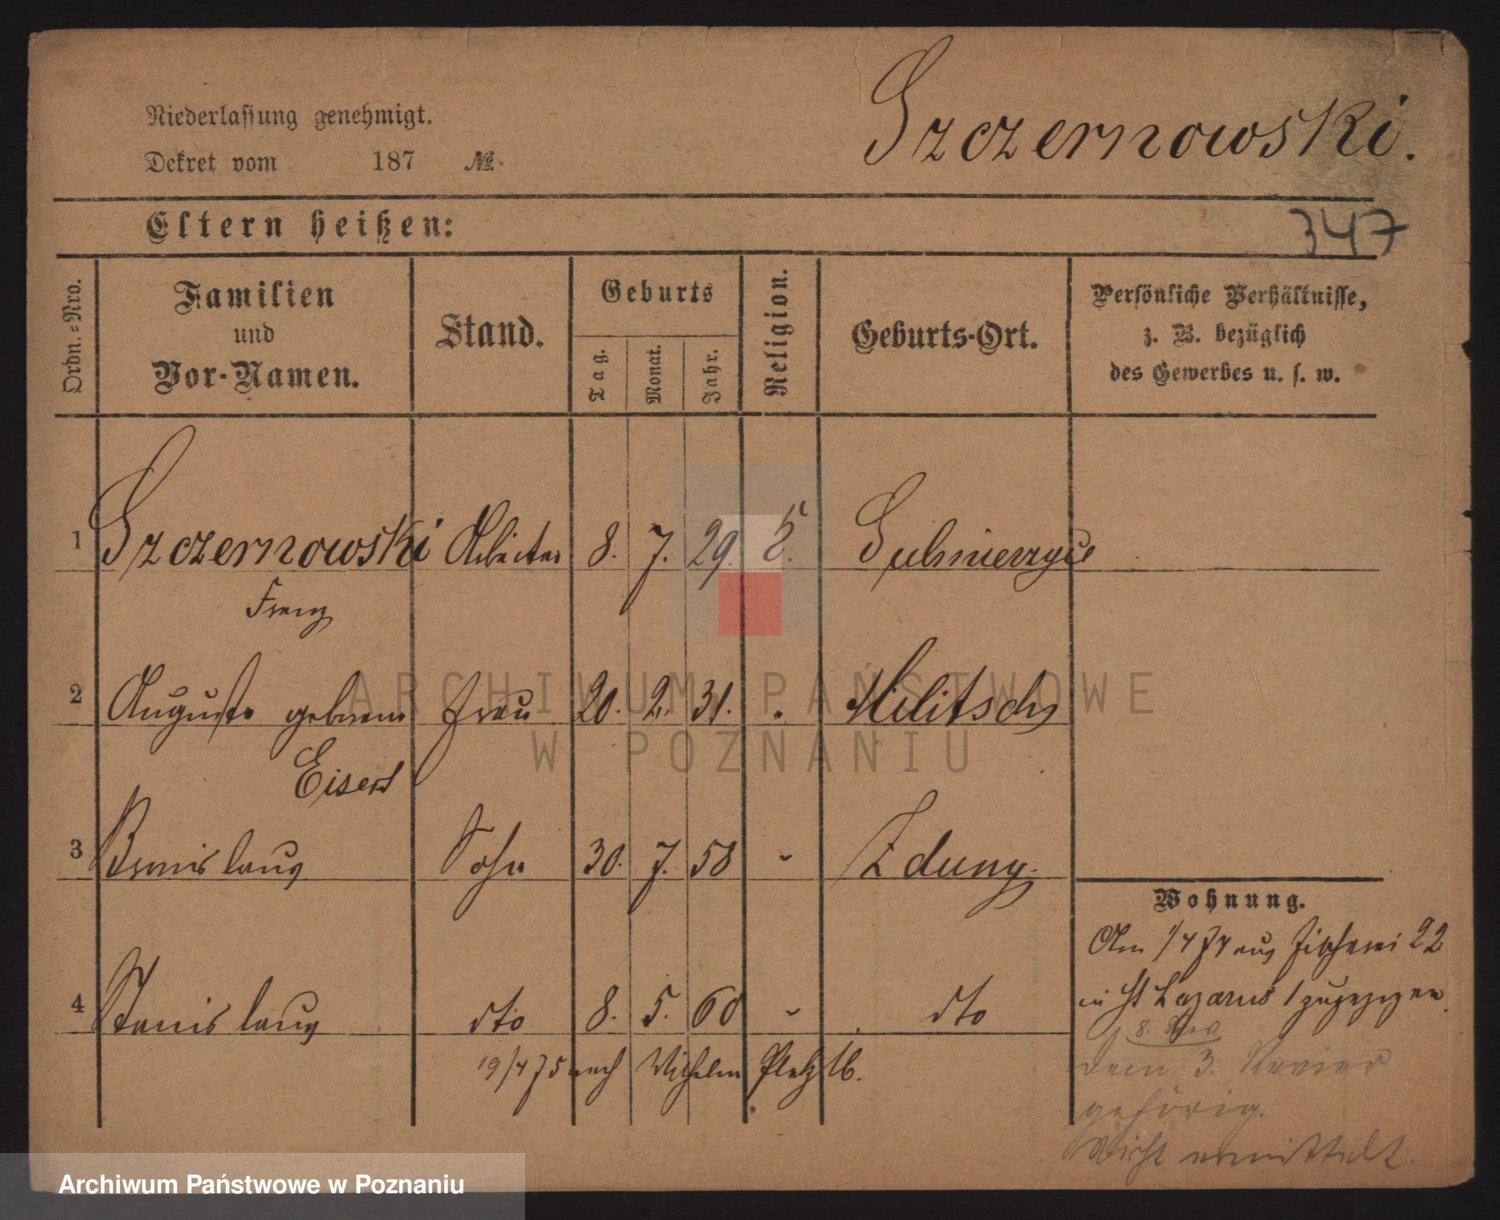 Niederlassung genehmigt.
Szczernowski.
Dekret vom 187 №
Eltern heißen:
347
Ordn.-Nro.
Familien und Vor-Namen.
Stand.
Geburts
Tag.
Monat.
Jahr.
Religion.
Geburts-Ort.
Persönliche Verhältnisse, z. B. bezüglich des Gewerbes u. s. w.
1 Szczernowski Arbeiter 8. 7. 29. Sulmierzyce
Franz
2 Auguste geborene Frau 20. 2. 31. Militsch
Eisert
3 Bronislaus Sohn 30. 7. 58 Zduny.
4 Stanislaus dto 8. 5. 60 dto
19/4 75 nach Wilhelm Platz 16.
Wohnung.
Am 1/4 74 aus Fischerei 22
in St Lazarus 1 zugezogen.
8. Rev.
dem 3. Revier
gehörig.
Nicht ermittelt.
ARCHIWUM PAŃSTWOWE
W POZNANIU
Archiwum Państwowe w Poznaniu